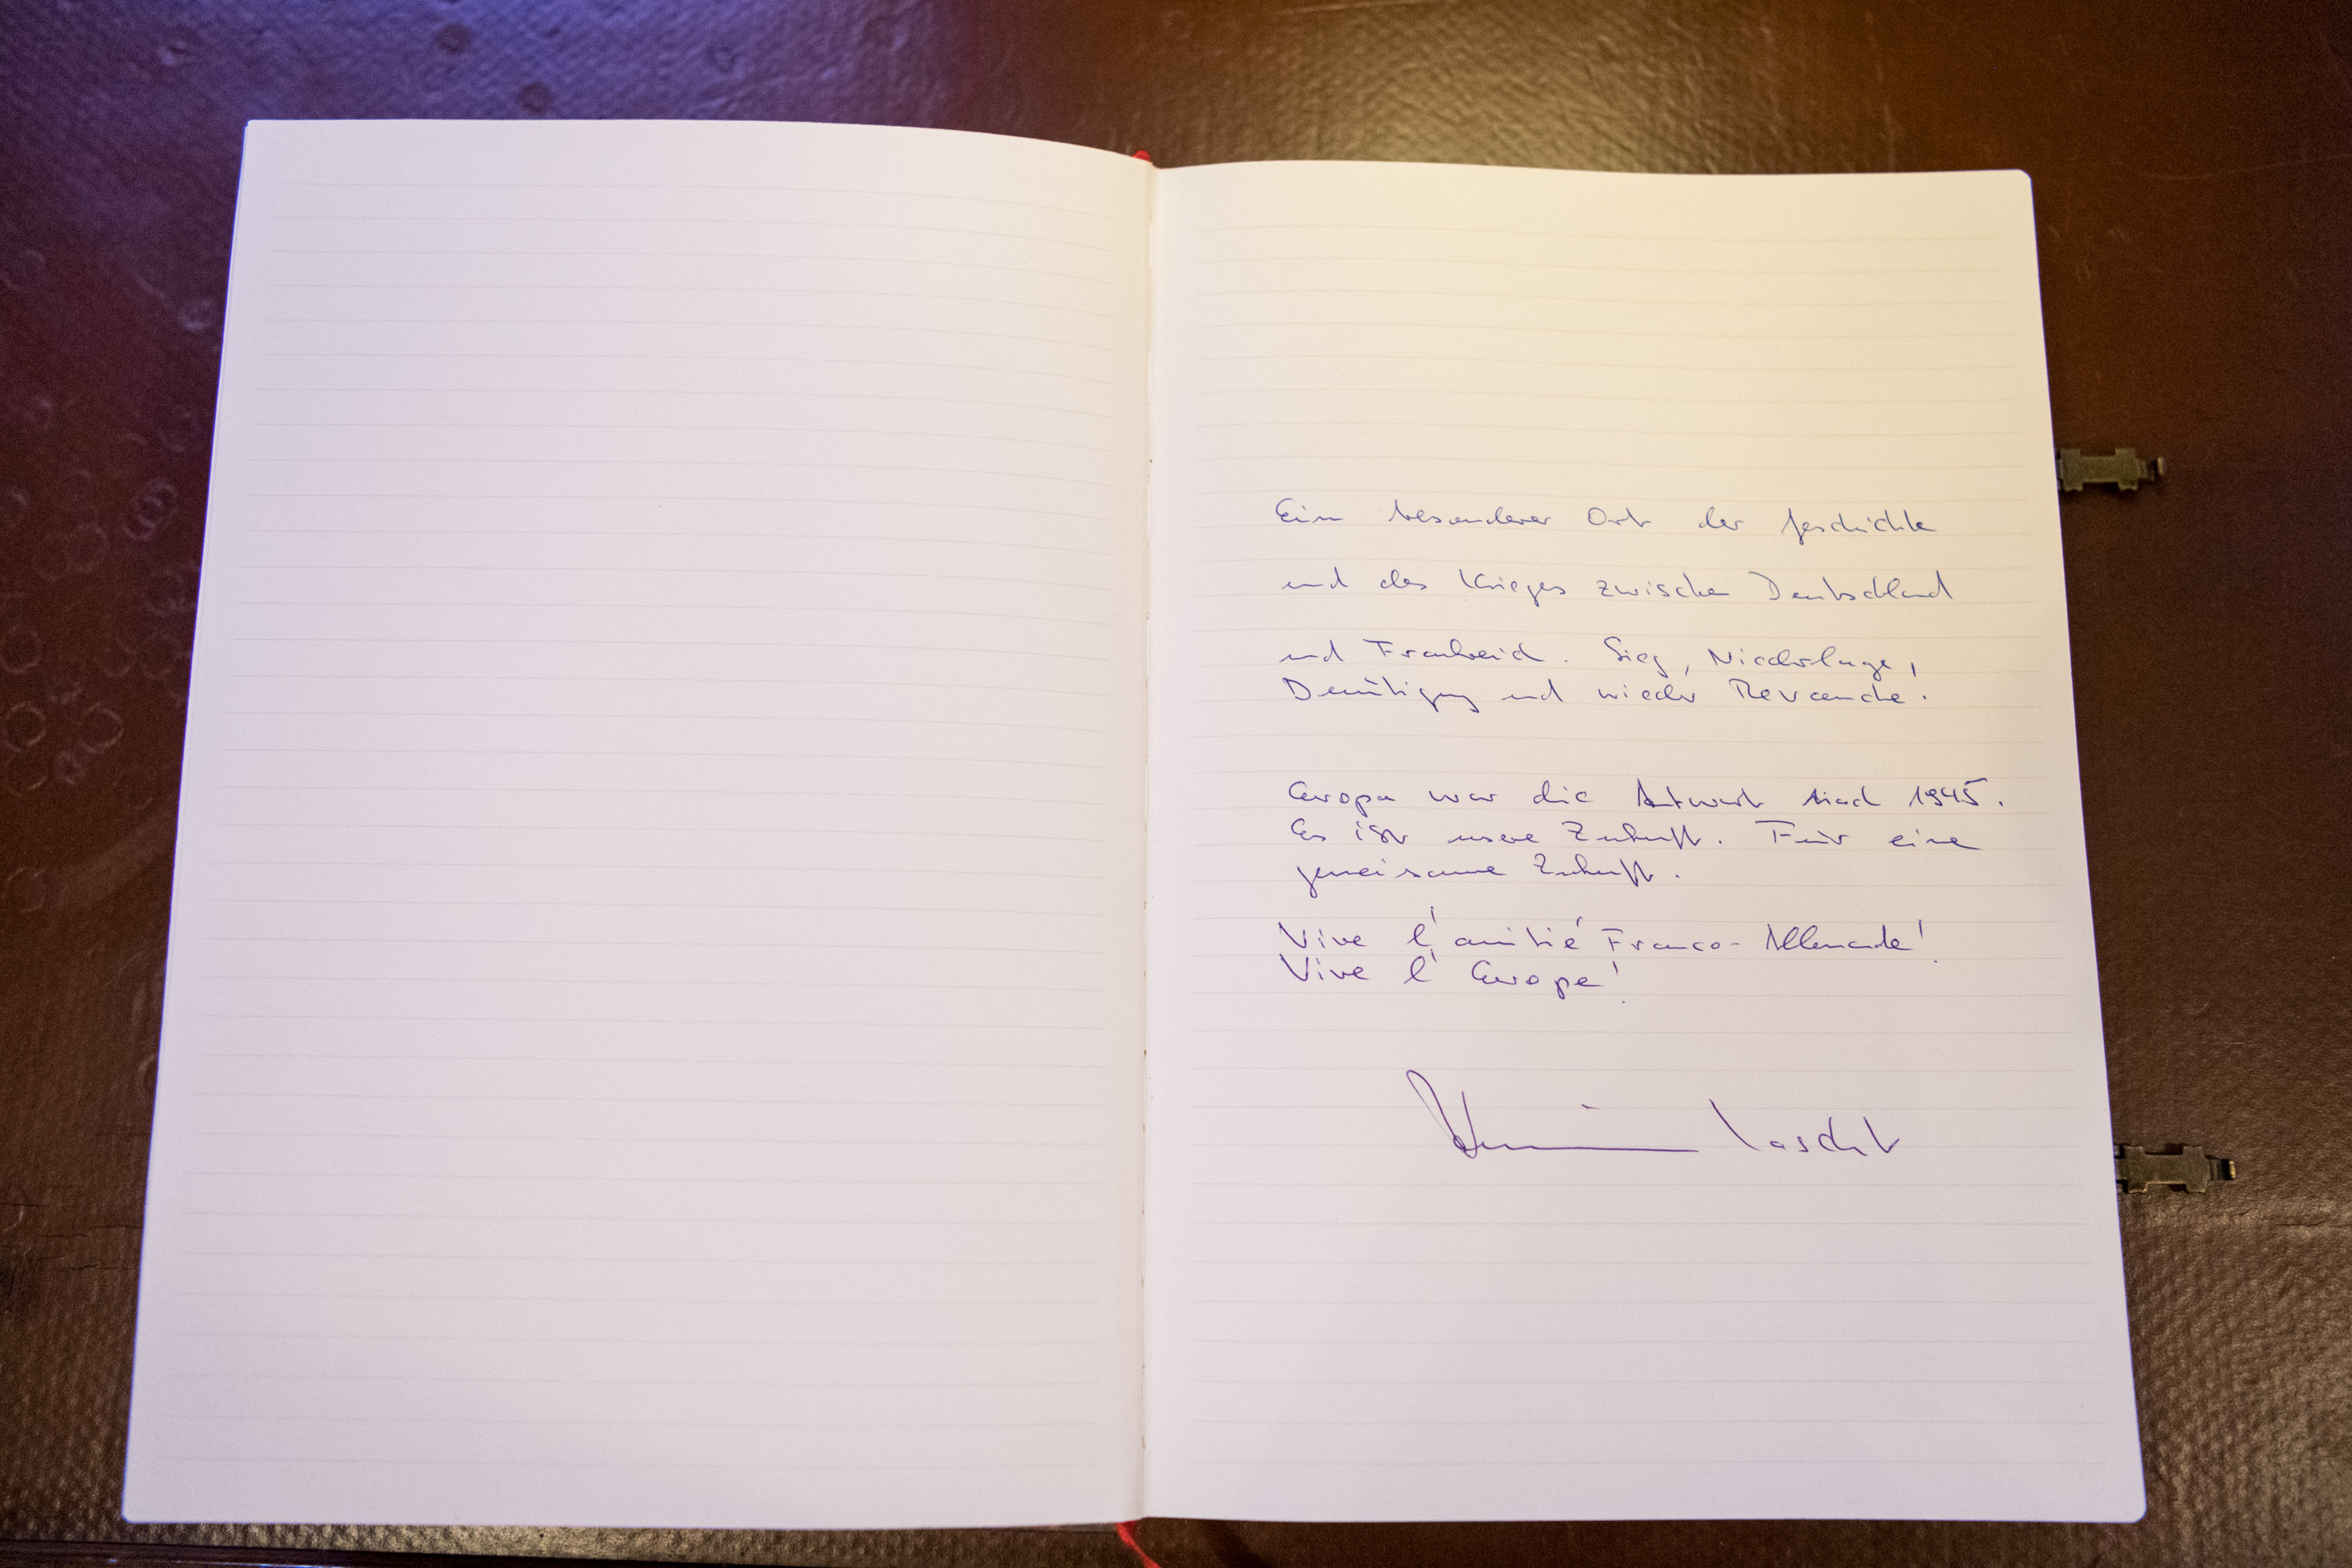 Ein besonderer Ort der Geschichte
und des Krieges zwischen Deutschland
und Frankreich. Sieg, Niederlage,
Demütigung und wieder Revanche.
Europa war die Antwort nach 1945.
Es ist unsere Zukunft. Für eine
gemeinsame Zukunft.
Vive l'amitié Franco-Allemande!
Vive l'Europe!
Armin Laschet